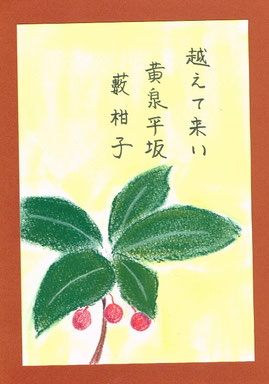 越えて来い
黄泉平坂
藪柑子